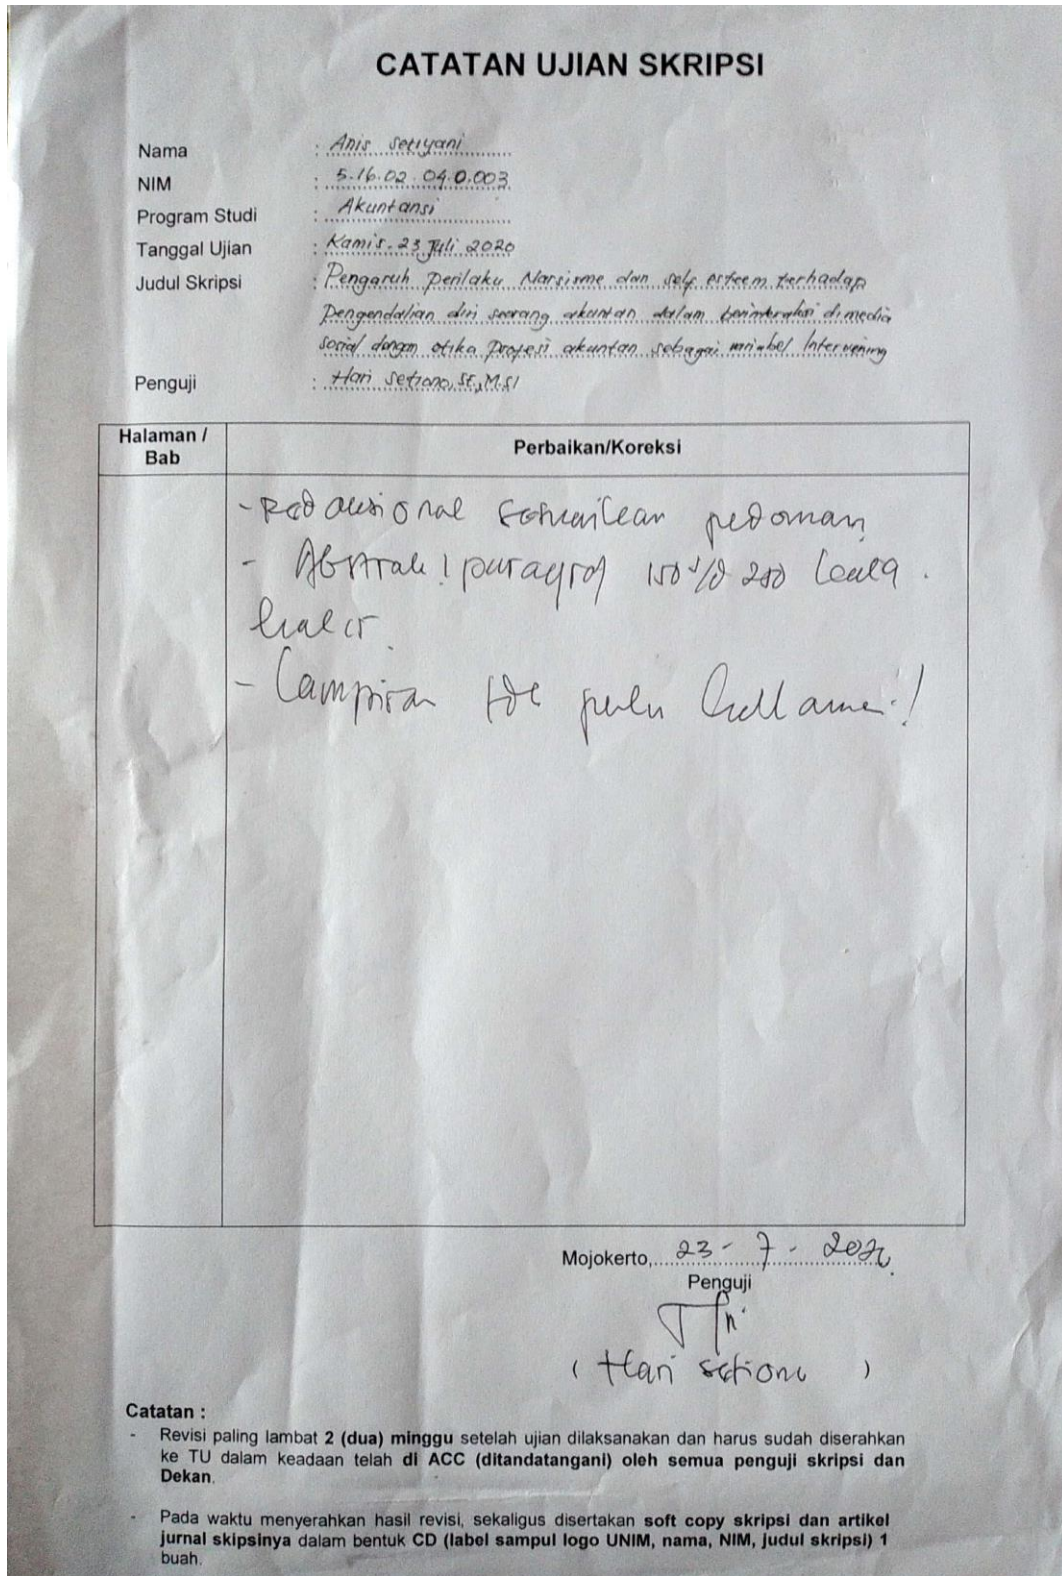 CATATAN UJIAN SKRIPSI
Nama : Anis Setiyani
NIM : 5.16.02.04.0.003
Program Studi : Akuntansi
Tanggal Ujian : Kamis. 23 Juli 2020
Judul Skripsi : Pengaruh Perilaku Narsisme dan self esteem terhadap
pengendalian diri seorang akuntan dalam berinteraksi di media
sosial dengan etika profesi akuntan sebagai variabel Intervening
Penguji : Hari Setiono, SE., M.SI
Halaman / Bab
Perbaikan/Koreksi
- Redaksional sesuaikan pedoman
- Abstrak 1 paragraf 150 s/d 250 kata.
- Lampiran tdk perlu halaman!
Mojokerto, 23 - 7 - 2020
Penguji
( Hari Setiono )
Catatan :
- Revisi paling lambat 2 (dua) minggu setelah ujian dilaksanakan dan harus sudah diserahkan
ke TU dalam keadaan telah di ACC (ditandatangani) oleh semua penguji skripsi dan
Dekan.
- Pada waktu menyerahkan hasil revisi, sekaligus disertakan soft copy skripsi dan artikel
jurnal skipsinya dalam bentuk CD (label sampul logo UNIM, nama, NIM, judul skripsi) 1
buah.